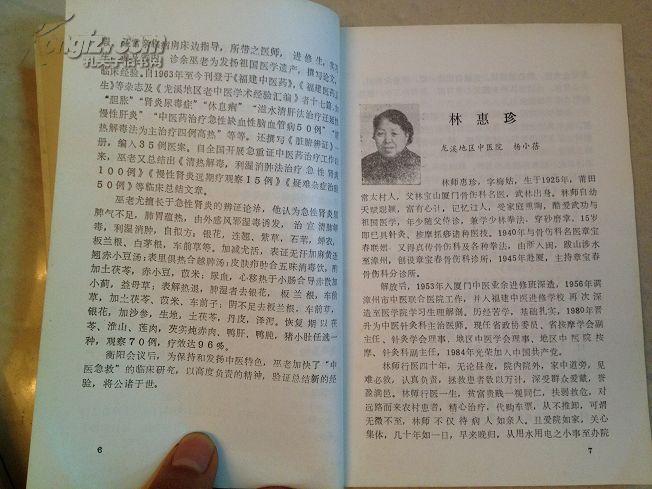 床边指导，所带之医师，进修生，实
诊余巫老为发扬祖国医学遗产，撰写论文，
临床经验。自1963年至今刊登于《福建中医药》，《福建医药
生》等杂志及《龙溪地区老中医学术经验汇编》者十七篇，
"胆胀""肾炎尿毒症""休息痢""滋水清肝法治疗迁延性
慢性肝炎""中医药治疗急性缺血性脑血管病50例""清
热解毒法为主治疗四例高热"等等。还撰写《脏腑辨证》一
册，编入35例医案。自全国开展急重证中医药治疗工作以
来，巫老又总结出《清热解毒，利湿消肿法治疗急性肾炎
100例》《慢性肾炎远期疗效观察15例》《疑难杂症治验
50例》等临床总结文章。
巫老尤擅长于急性肾炎的辨证论治，他认为急性肾炎
肺气不足，肺胃蕴热，由外感风邪湿毒诱发，治宜清肺解
毒，利湿消肿，自拟方：银花，连翘，紫草，石苇，蝉衣，
板兰根、白茅根，车前草等。加减尤活，表证无汗加麻黄连
翘赤小豆汤；表里俱热合越肺汤；皮肤疖肿合五味消毒饮，
加土茯苓，赤小豆，苡米；尿血，心移热于小肠合导赤散加
小蓟，益母草；表解热退，肺湿者去银花，板兰根，车前
草，加土茯苓、苡米、车前子；阴不足去板兰根、车前草、
银花，加沙参，生地，土茯苓、丹皮，泽泻。恢复期以茯
苓、淮山、莲肉，芡实炖赤肉、鸭肝、鸭肫，猪小肚任选一
种，观察70例，疗效达96％。
衡阳会议后，为保持和发扬中医特色，巫老加快了"中
医急救"的临床研究，以高度负责的精神，验证总结新的经
验，将公诸于世。
6
林惠珍
龙溪地区中医院 杨小蓓
林师惠珍，字梅姑，生于1925年，莆田
常太村人，父林宝山厦门骨伤科名医，武林出身。林师自幼
天赋聪颖，富有心计，记忆过人，受家庭熏陶，酷爱武功与
祖国医学，年少随父侍诊，兼学少林拳法，穿秒磨章，15岁
即已具针灸、按摩抓痧诸种医技。1940年与骨伤科名医章宝
春联姻，又得真传骨伤科及各种拳法，由厦入闽，跋山涉水
至漳州，创设章宝春骨伤科诊所，1945年赴厦，主持章宝春
骨伤科分诊所。
解放后，1953年入厦门中医业余进修班深造，1956年调
漳州市中医联合医院工作，并入福建中医进修学校再次深
造至医学院学习生理解剖，历经苦学，基础扎实，1980年晋
升为中医针灸科主治医师，现任省政协委员、省按摩学会副
主任、针灸学会理事、地区中医学会理事、地区中医院按
摩、针灸科副主任，1984年光荣加入中国共产党。
林师行医四十年，无论昼夜，院内院外，家中道旁，见
难必救，认真负责，拯救患者数以万计，深受群众爱戴，誉
盈满邑。林师行医一生，贫富贵贱一视同仁，扶弱救危，对
远路而来农村患者，精心治疗，代购车票，从不推卸，可谓
无微不至，林师不仅待病人如亲人。且爱院如家，关心
集体，几十年如一日，早来晚归，从用水用电之小事至办院
7